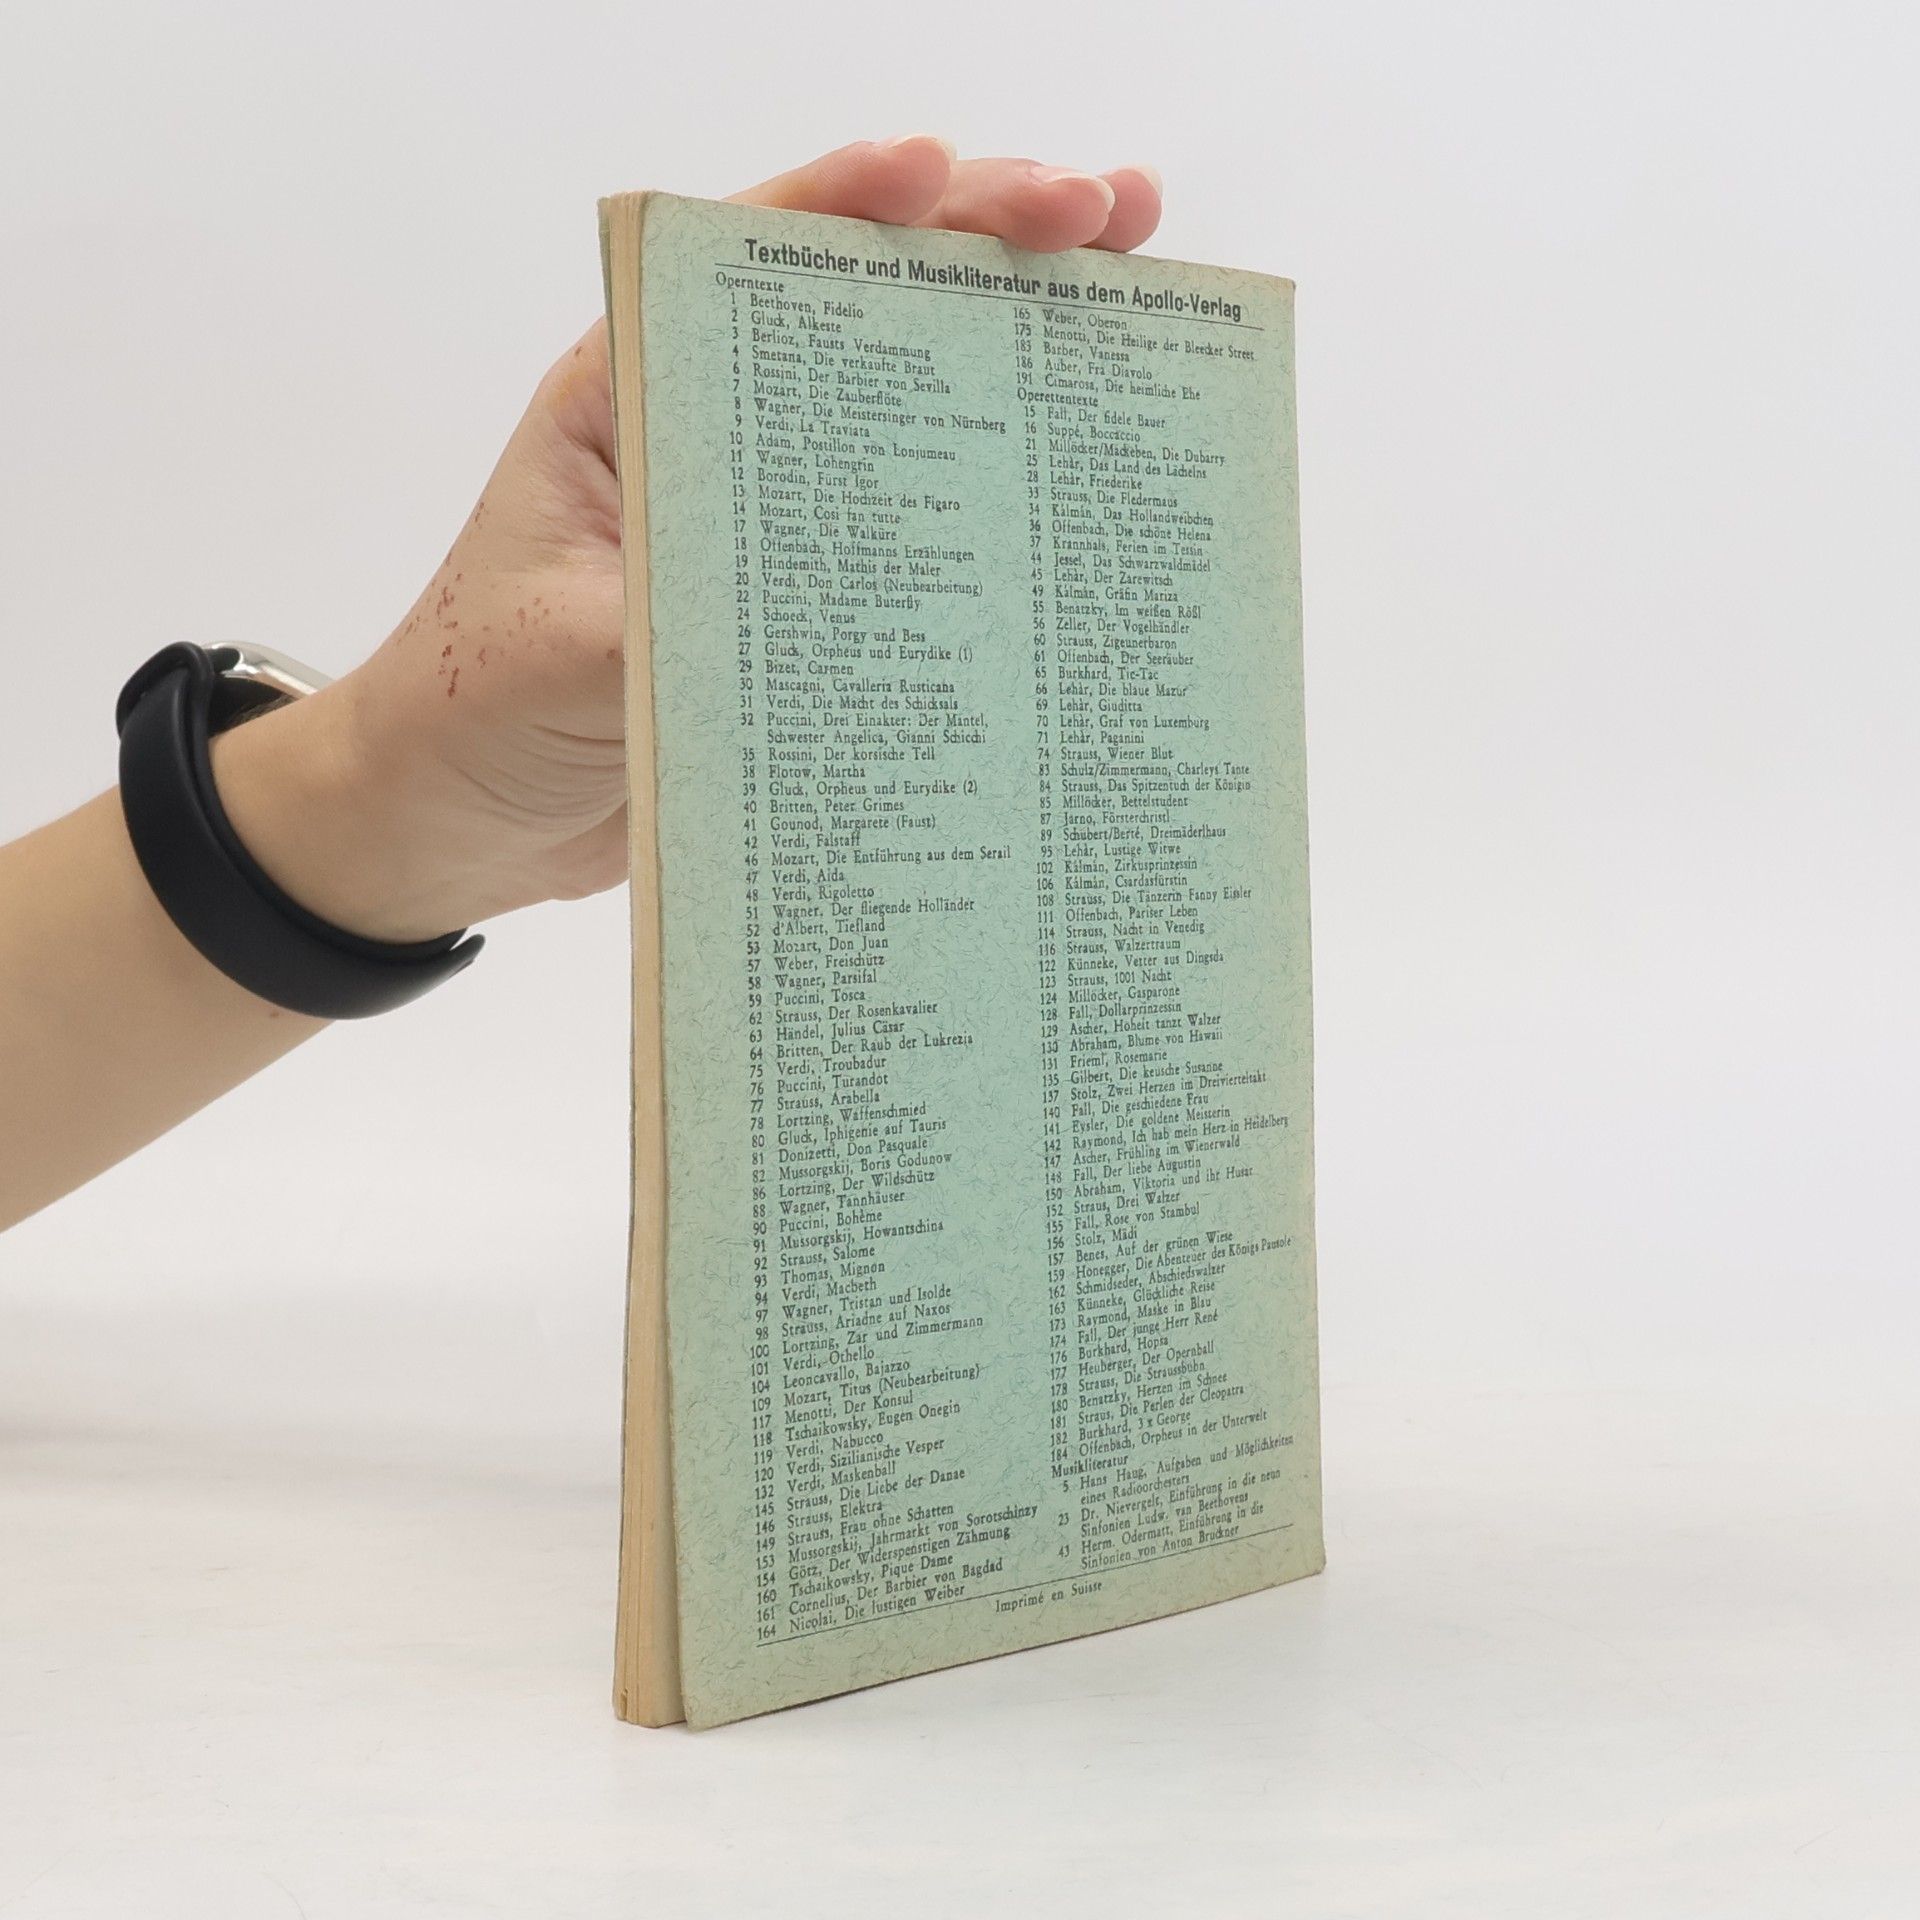 Textbücher und Musikliteratur aus dem Apollo-Verlag
Operntexte
1 Beethoven, Fidelio
2 Gluck, Alkeste
3 Berlioz, Fausts Verdammung
4 Smetana, Die verkaufte Braut
6 Rossini, Der Barbier von Sevilla
7 Mozart, Die Zauberflöte
8 Wagner, Die Meistersinger von Nürnberg
9 Verdi, La Traviata
10 Adam, Postillon von Lonjumeau
11 Wagner, Lohengrin
12 Borodin, Fürst Igor
13 Mozart, Die Hochzeit des Figaro
14 Mozart, Cosi fan tutte
17 Wagner, Die Walküre
18 Offenbach, Hoffmanns Erzählungen
19 Hindemith, Mathis der Maler
20 Verdi, Don Carlos (Neubearbeitung)
22 Puccini, Madame Buterfly
24 Schoeck, Venus
26 Gershwin, Porgy und Bess
27 Gluck, Orpheus und Eurydike (1)
29 Bizet, Carmen
30 Mascagni, Cavalleria Rusticana
31 Verdi, Die Macht des Schicksals
32 Puccini, Drei Einakter: Der Mantel,
Schwester Angelica, Gianni Schicchi
35 Rossini, Der korsische Tell
38 Flotow, Martha
39 Gluck, Orpheus und Eurydike (2)
40 Britten, Peter Grimes
41 Gounod, Margarete (Faust)
42 Verdi, Falstaff
46 Mozart, Die Entführung aus dem Serail
47 Verdi, Aida
48 Verdi, Rigoletto
51 Wagner, Der fliegende Holländer
52 d'Albert, Tiefland
53 Mozart, Don Juan
57 Weber, Freischütz
58 Wagner, Parsifal
59 Puccini, Tosca
62 Strauss, Der Rosenkavalier
63 Händel, Julius Cäsar
64 Britten, Der Raub der Lukrezia
75 Verdi, Troubadur
76 Puccini, Turandot
77 Strauss, Arabella
78 Lortzing, Waffenschmied
80 Gluck, Iphigenie auf Tauris
81 Donizetti, Don Pasquale
82 Mussorgskij, Boris Godunow
86 Lortzing, Der Wildschütz
88 Wagner, Tannhäuser
90 Puccini, Bohème
91 Mussorgskij, Howantschina
92 Strauss, Salome
93 Thomas, Mignon
94 Verdi, Macbeth
97 Wagner, Tristan und Isolde
98 Strauss, Ariadne auf Naxos
100 Lortzing, Zar und Zimmermann
101 Verdi, Othello
104 Leoncavallo, Bajazzo
109 Mozart, Titus (Neubearbeitung)
117 Menotti, Der Konsul
118 Tschaikowsky, Eugen Onegin
119 Verdi, Nabucco
120 Verdi, Sizilianische Vesper
132 Verdi, Maskenball
145 Strauss, Die Liebe der Danae
146 Strauss, Elektra
149 Strauss, Frau ohne Schatten
153 Mussorgskij, Jahrmarkt von Sorotschinzy
154 Götz, Der Widerspenstigen Zähmung
160 Tschaikowsky, Pique Dame
161 Cornelius, Der Barbier von Bagdad
164 Nicolai, Die lustigen Weiber
165 Weber, Oberon
175 Menotti, Die Heilige der Bleecker Street
183 Barber, Vanessa
186 Auber, Fra Diavolo
191 Cimarosa, Die heimliche Ehe
Operettentexte
15 Fall, Der fidele Bauer
16 Suppé, Boccaccio
21 Millöcker/Mackeben, Die Dubarry
25 Lehàr, Das Land des Lächelns
28 Lehàr, Friederike
33 Strauss, Die Fledermaus
34 Kálmán, Das Hollandweibchen
36 Offenbach, Die schöne Helena
37 Krannhals, Ferien im Tessin
44 Jessel, Das Schwarzwaldmädel
45 Lehàr, Der Zarewitsch
49 Kálmán, Gräfin Mariza
55 Benatzky, Im weißen Rößl
56 Zeller, Der Vogelhändler
60 Strauss, Zigeunerbaron
61 Offenbach, Der Seeräuber
65 Burkhard, Tic-Tac
66 Lehàr, Die blaue Mazur
69 Lehàr, Giuditta
70 Lehàr, Graf von Luxemburg
71 Lehàr, Paganini
74 Strauss, Wiener Blut
83 Schulz/Zimmermann, Charleys Tante
84 Strauss, Das Spitzentuch der Königin
85 Millöcker, Bettelstudent
87 Jarno, Försterchristl
89 Schubert/Berté, Dreimäderlhaus
95 Lehàr, Lustige Witwe
102 Kálmán, Zirkusprinzessin
106 Kálmán, Csardasfürstin
108 Strauss, Die Tänzerin Fanny Elssler
111 Offenbach, Pariser Leben
114 Strauss, Nacht in Venedig
116 Strauss, Walzertraum
122 Künneke, Vetter aus Dingsda
123 Strauss, 1001 Nacht
124 Millöcker, Gasparone
128 Fall, Dollarprinzessin
129 Ascher, Hoheit tanzt Walzer
130 Abraham, Blume von Hawaii
131 Friml, Rosemarie
135 Gilbert, Die keusche Susanne
137 Stolz, Zwei Herzen im Dreivierteltakt
140 Fall, Die geschiedene Frau
141 Eysler, Die goldene Meisterin
142 Raymond, Ich hab mein Herz in Heidelberg
147 Ascher, Frühling im Wienerwald
148 Fall, Der liebe Augustin
150 Abraham, Viktoria und ihr Husar
152 Straus, Drei Walzer
155 Fall, Rose von Stambul
156 Stolz, Mädi
157 Benes, Auf der grünen Wiese
159 Honegger, Die Abenteuer des Königs Pausole
162 Schmidseder, Abschiedswalzer
163 Künneke, Glückliche Reise
173 Raymond, Maske in Blau
174 Fall, Der junge Herr René
176 Burkhard, Hopsa
177 Heuberger, Der Opernball
178 Strauss, Die Straussbuhn
180 Benatzky, Herzen im Schnee
181 Straus, Die Perlen der Cleopatra
182 Burkhard, 3 x George
184 Offenbach, Orpheus in der Unterwelt
Musikliteratur
5 Hans Haug, Aufgaben und Möglichkeiten
eines Radioorchesters
23 Dr. Nievergelt, Einführung in die neun
Sinfonien Ludw. van Beethovens
43 Herm. Odermatt, Einführung in die
Sinfonien von Anton Bruckner
Imprimé en Suisse